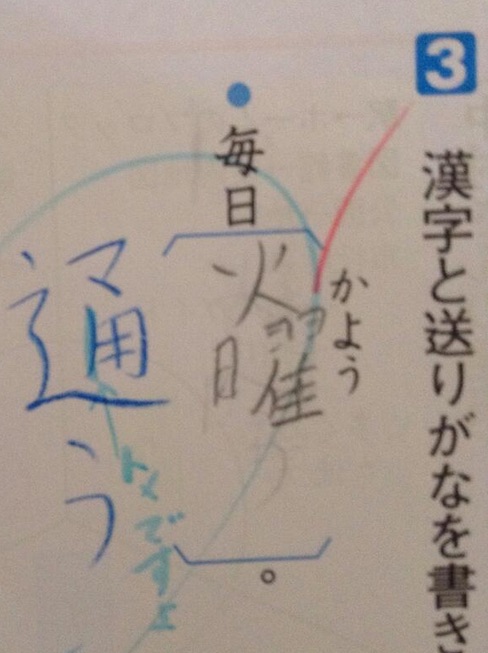 3 漢字と送りがなを書き
かよう
毎日火曜。
通う
トメですよ